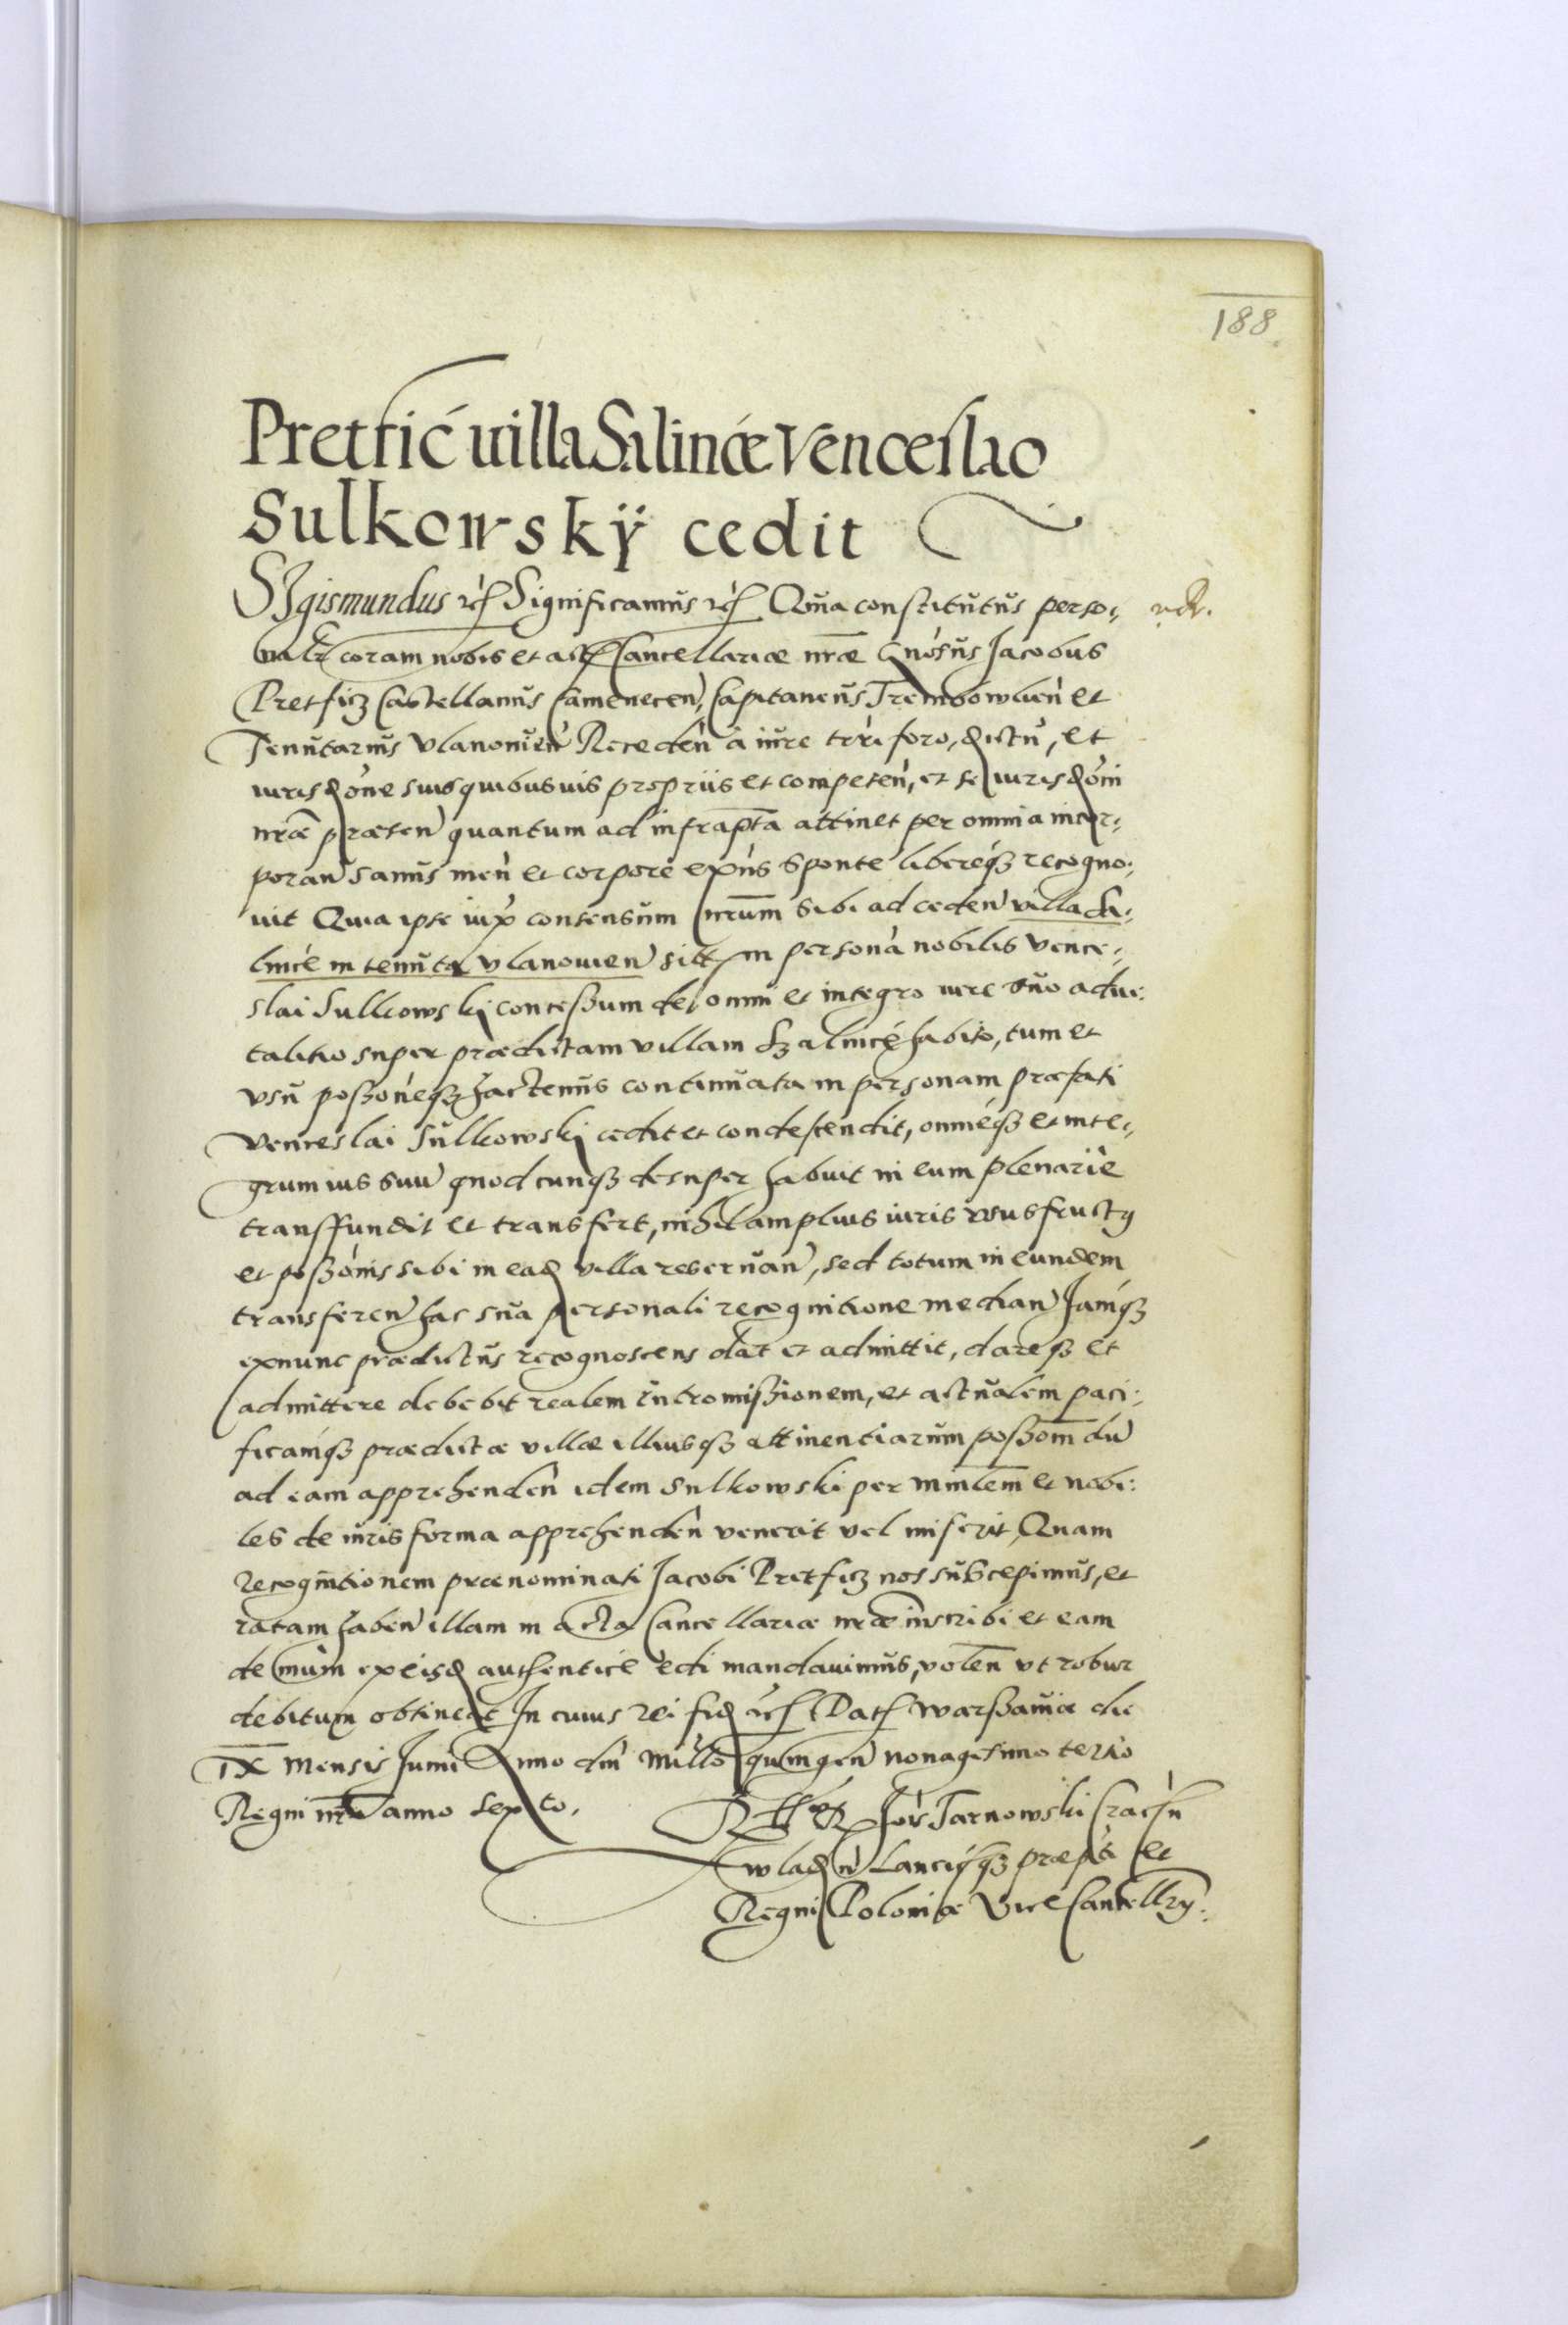 188
Pretfic villa Salincæ Venceslao
Sulkowskÿ cedit
Sigismundus etc Significamus etc Quia constitutus perso,
nalr coram nobis et actis Cancellariæ nræ Gnosus Jacobus
Pretficz Castellanus Camenecen, Capitaneus Trembowlien et
Tenutarius Ulanovien Receden a iure terri foro, dictu, et
iurisdone suis quibusvis propriis et competen, et se iurisdoni
nræ præsen quantum ad infrapta attinet per omnia incor,
poran sanus men et corpore exns sponte libereq recogno,
vit Quia ipse iux consensum nrum sibi ad ceden villa Sa,
lince in tenuta Ulanovien sitt in persona nobilis Vence,
slai Sulkowski concessum de omni et integro iure suo advi:
talitio super prædictam villam Szalince habito, tum et
usu possoneq hactenus continuata in personam præfati
Venceslai Sulkowski cedit et condescendit, omneq et inte,
grum ius suu quodcunq desuper habuit in eum plenarie
transffundit et transfert, nihil amplius iuris ususfructus
et possonis sibi in ead villa reservan, sed totum in eundem
transferen hac sua personali recognitione median Jamq
exnunc prædictus recognoscens dat et admittit, dareq et
admittere debebit realem intromissionem, et actualem paci:
ficamq prædictæ villæ illiusq attinentiarum possom du
ad eam apprehenden idem Sulkowski per minlem et nobi:
les de iuris forma apprehenden venerit vel miserit, Quam
recognitionem prænominati Jacobi Pretficz nos suscepimus, et
ratam haben illam in acta Cancellariæ nræ inscribi et eam
demum ex eisd authentice edi mandavimus, volen ut robur
debitum obtineat In cuius rei fid etc Dat Warssaviæ die
IX Mensis Junii Anno dni Millo quingen nonagesimo tertio
Regni nri anno sexto.
Rtt Jois Tarnowski Cracn
Wladn Lanciq præpti et
Regni Poloniæ ViceCancellry.